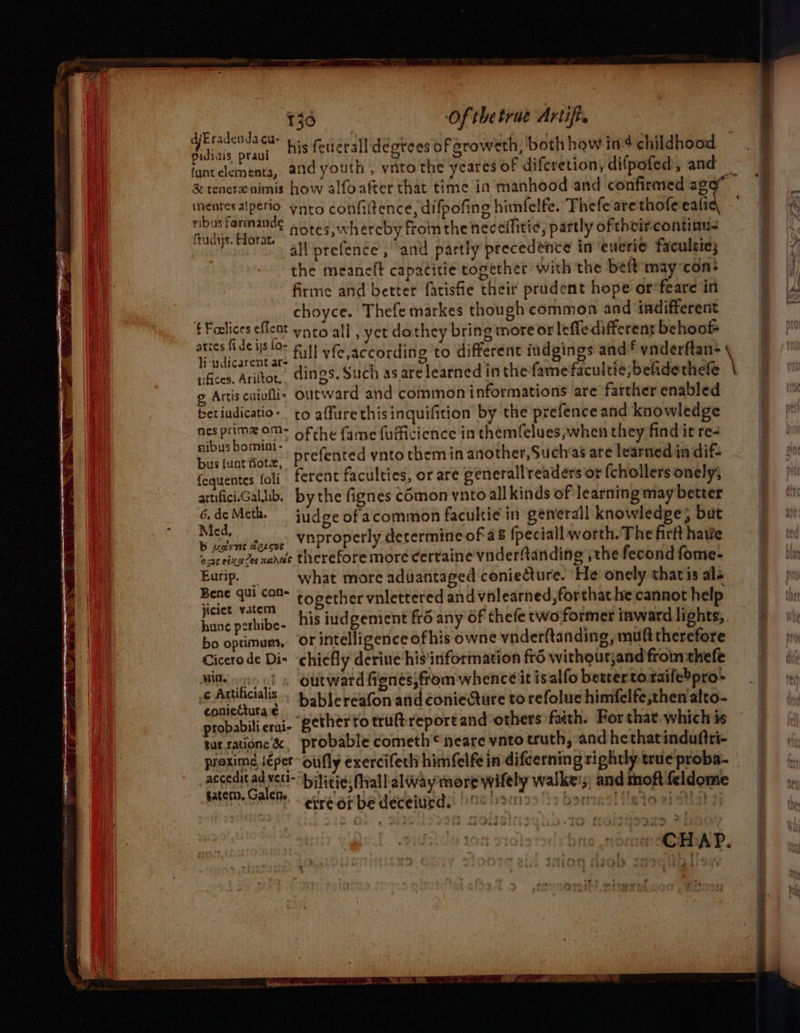 136 Of the true Artist.
d Eradenda cu-
pidinis praui
sunt elementa,
& teneræ nimis
mentes asperio
ribus formandę
studijs. Horat.
f Fœlices essent
artes si de ijs so-
li iudicarent ar-
tifices. Aristot.
g Artis cuiusli-
bet iudicatio-
nes primæ om-
nibus homini-
bus sunt notæ,
sequentes soli
artifici. Gal. lib.
6. de Meth.
Med.
Eurip.
Bene qui con-
jiciet vatem
hunc perhibe-
bo optimum,
Cicero de Di-
uin.
c Artificialis
coniectura ę
probabili erui-
tur ratione &
proximè sęper
accedit ad veri-
tatem. Galen.
his seuerall degrees of groweth, both how in d childhood
and youth, vnto the yeares of discretion, disposed, and
how also after that time in manhood and confirmed age
vnto consistence, disposing himselfe. These are those easie
notes, whereby from the necessitie, partly of their continu-
all presence, and partly precedence in euerie facultie;
the meanest capacitie together with the best may con-
firme and better satisfie their prudent hope or feare in
choyce. These markes though common and indifferent
vnto all, yet do they bring more or lesse different behoof-
full vse, according to different iudgings and f vnderstan-
dings. Such as are learned in the same facultie, beside these
outward and common informations are farther enabled
to assure this inquisition by the presence and knowledge
of the same sufficience in themselues, when they find it re-
presented vnto them in another, Such as are learned in dif-
ferent faculties, or are generall readers or schollers onely,
by the signes cōmon vnto all kinds of learning may better
judge of a common facultie in generall knowledge; but
vnproperly determine of a g speciall worth. The first haue
therefore more certaine vnderstanding, the second some-
what more aduantaged coniecture. He onely that is al-
together vnlettered and vnlearned, for that he cannot help
his iudgement frō any of these two former inward lights,
or intelligence of his owne vnderstanding, must therefore
chiefly deriue his information frō without; and from these
outward signes, from whence it is also better to raise b pro-
bable reason and coniecture to resolue himselfe, then alto-
gether to trust report and others faith. For that which is
probable cometh c neare vnto truth, and he that industri-
ously exerciseth himselfe in discerning rightly true proba-
bilitie, shall alway more wisely walke; and most seldome
erre or be deceiued.
CHAP.